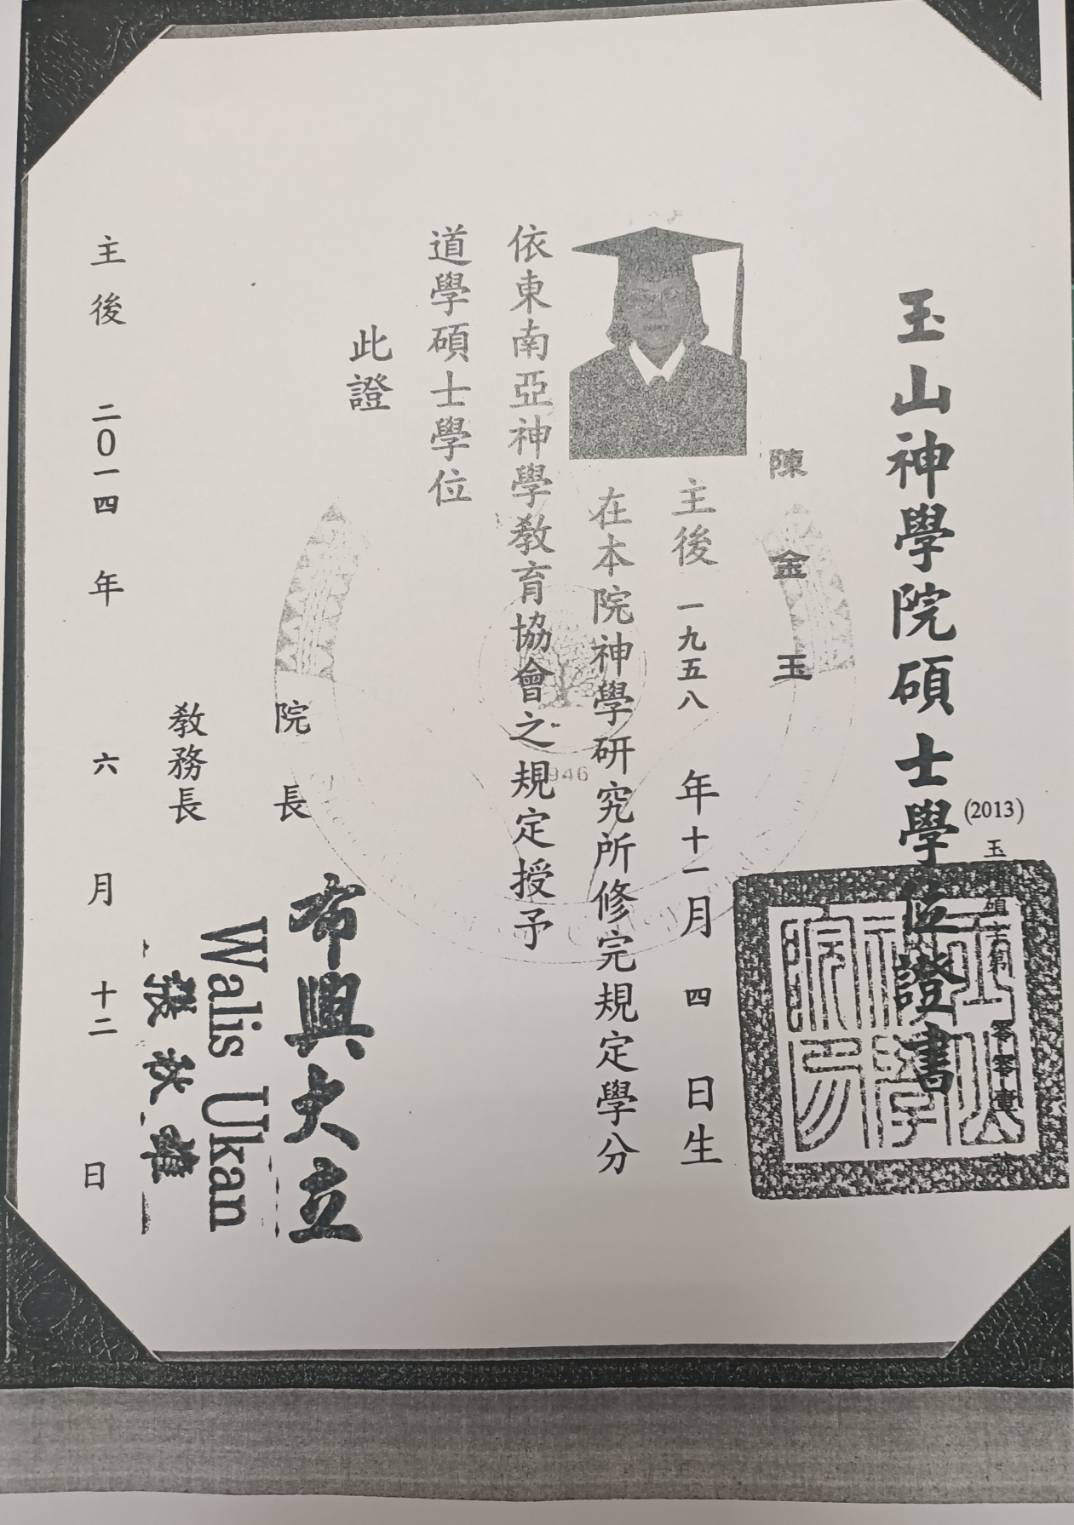 玉山神學院碩士學位證書
(2013)
玉
碩士第 零零壹 號
陳金玉
主後 一九五八 年 十一 月 四 日生
在本院神學研究所修完規定學分
依東南亞神學教育協會之規定授予
道學碩士學位
此證
院長 布興大立
Walis Ukan
教務長
主後 二0一四 年 六 月 十二 日
1946